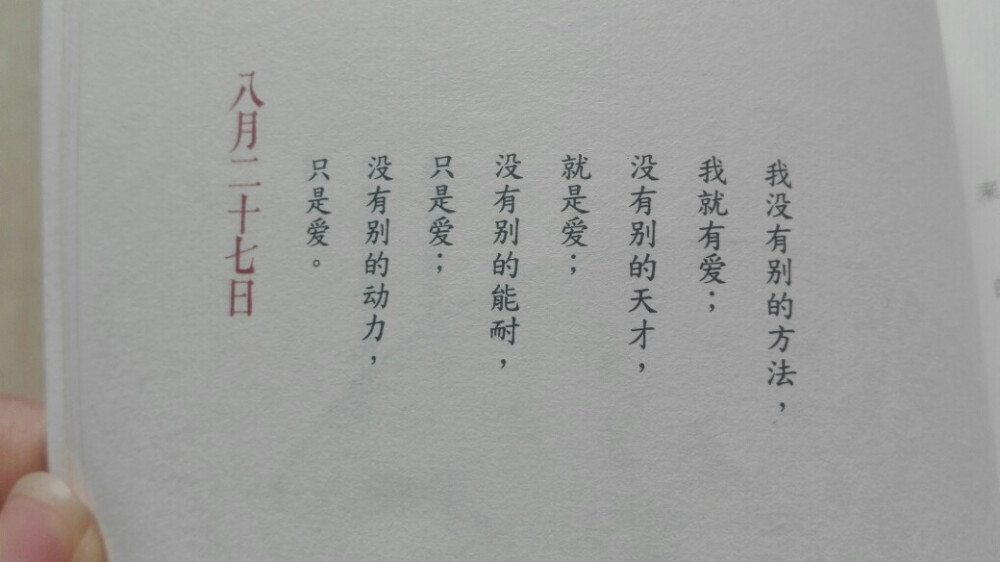 我没有别的方法，
我就有爱；
没有别的天才，
就是爱；
没有别的能耐，
只是爱；
没有别的动力，
只是爱。
八月二十七日